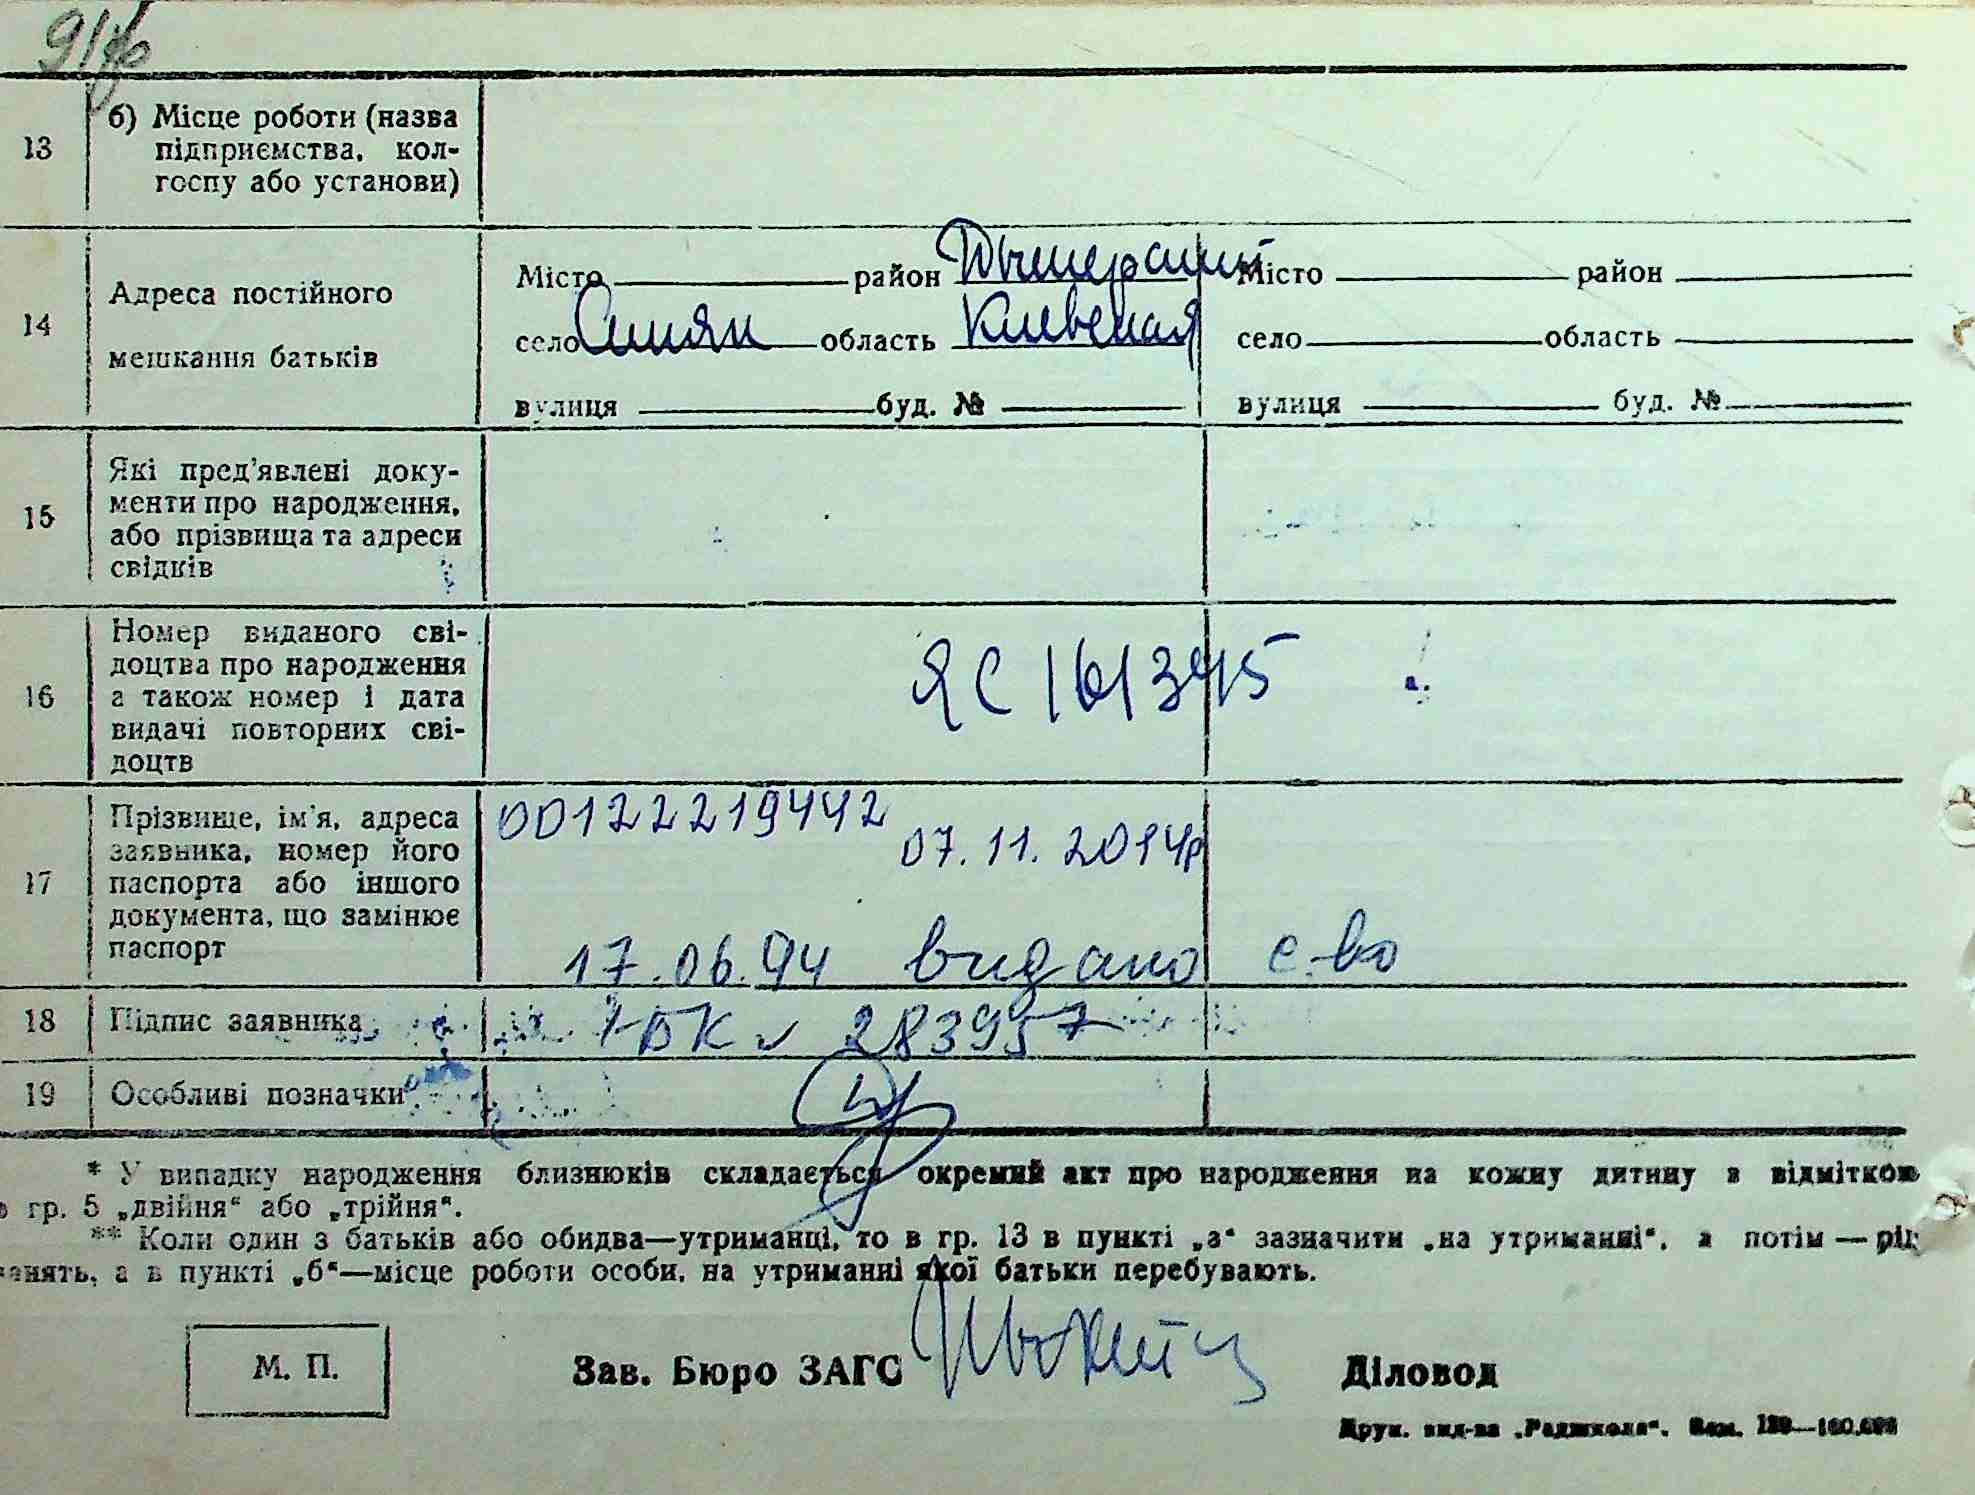 13
б) Місце роботи (назва
підприємства, кол-
госпу або установи)
14
Адреса постійного
мешкання батьків
Місто район Дымерский
село Синяк область Киевская
вулиця буд. №
Місто район
село область
вулиця буд. №
15
Які пред'явлені доку-
менти про народження,
або прізвища та адреси
свідків
16
Номер виданого сві-
доцтва про народження
а також номер і дата
видачі повторних сві-
доцтв
ЯС 161345
17
Прізвище, ім'я, адреса
заявника, номер його
паспорта або іншого
документа, що замінює
паспорт
00122219442
07.11.2014р
17.06.94 видано с-во
18
Підпис заявника
І-БК № 283957
19
Особливі позначки
* У випадку народження близнюків складається окремий акт про народження на кожну дитину з відміткою
гр. 5 „двійня“ або „трійня“.
** Коли один з батьків або обидва—утриманці, то в гр. 13 в пункті „а“ зазначити „на утриманні“, а потім — рід
занять, а в пункті „б“—місце роботи особи, на утриманні якої батьки перебувають.
М. П.
Зав. Бюро ЗАГС
Діловод
Друк. вид-ва „Радшкола“. Зам.